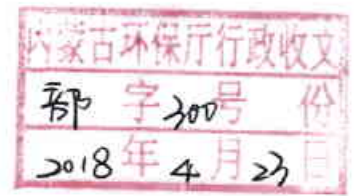 内蒙古环保厅行政收文
部字300号 份
2018年4月23日